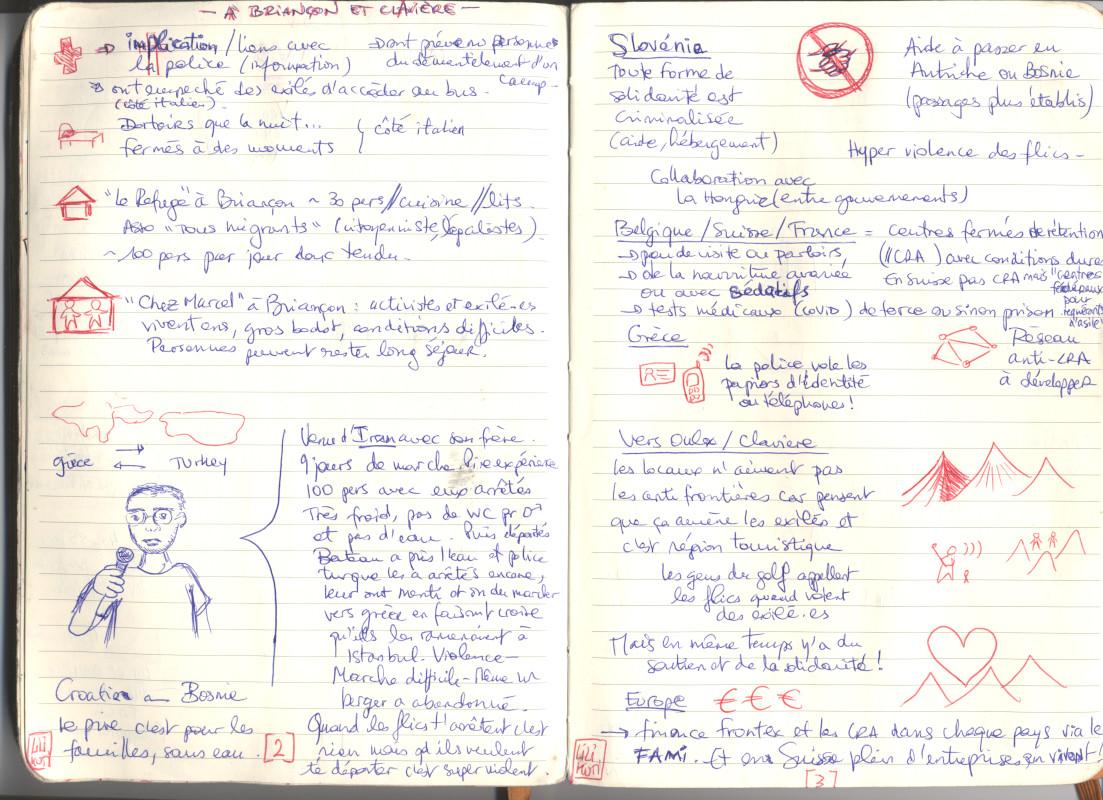 — A BRIANÇON ET CLAVIÈRE —
→ implication / liens avec
la police (information)
→ dont prévenu personnes
du démantèlement d'un
camp –
→ ont empêché des exilés d'accéder au bus.
(côté italien).
Dortoirs que la nuit...
fermés à des moments
côté italien
"Le Refuge" à Briançon ~ 30 pers // cuisine // lits.
Asso "Tous migrants" (citoyenniste, légalistes)
~ 100 pers par jour donc tendu.
"Chez Marcel" à Briançon : activistes et exilé-es
vivent ens, gros bordel, conditions difficiles.
Personnes peuvent rester long séjour.
grèce
Turkey
Venue d'Iran avec son frère.
9 jours de marche, pire expérience
100 pers avec eux arrêtés
Très froid, pas de WC pr
et pas d'eau. Puis déportés
Bateau a pris l'eau et police
turque les a arrêtés encore,
leur ont menti et on du marcher
vers grèce en faisant croire
qu'ils les ramenaient à
Istanbul. Violence –
Marche difficile – Même un
berger a abandonné.
Croatie Bosnie
Le pire c'est pour les
familles, sans eau.
Quand les flics t'arrêtent c'est
rien mais qd ils veulent
te déporter c'est super violent.
LiLi
KORi
[2]
Slovénia
Toute forme de
solidarité est
criminalisée
(aide, hébergement)
Aide à passer en
Autriche ou Bosnie
(passages plus établis)
Hyper violence des flics –
Collaboration avec
la Hongrie (entre gouvernements)
Belgique / Suisse / France = centres fermés de rétention
→ peu de visite ou parloirs,
(// CRA) avec conditions dures
→ de la nourriture avariée
ou avec sédatifs
En Suisse pas CRA mais "centres
fédéraux
pour
requérants
d'asile"
→ tests médicaux (covid) de force ou sinon prison
Grèce
RE
La police vole les
papiers d'identité
ou téléphones !
Réseau
anti-CRA
à développer
Vers Oulx / Clavière
Les locaux n'aiment pas
les anti frontières car pensent
que ça amène les exilés et
c'est région touristique
les gens du golf appellent
les flics quand voient
des exilé.es
Mais en même temps y'a du
soutien et de la solidarité !
Europe € € €
→ finance frontex et les CRA dans chaque pays via le
FAMI. Et en Suisse plein d'entreprises en vivent !
LiLi
KORi
[3]